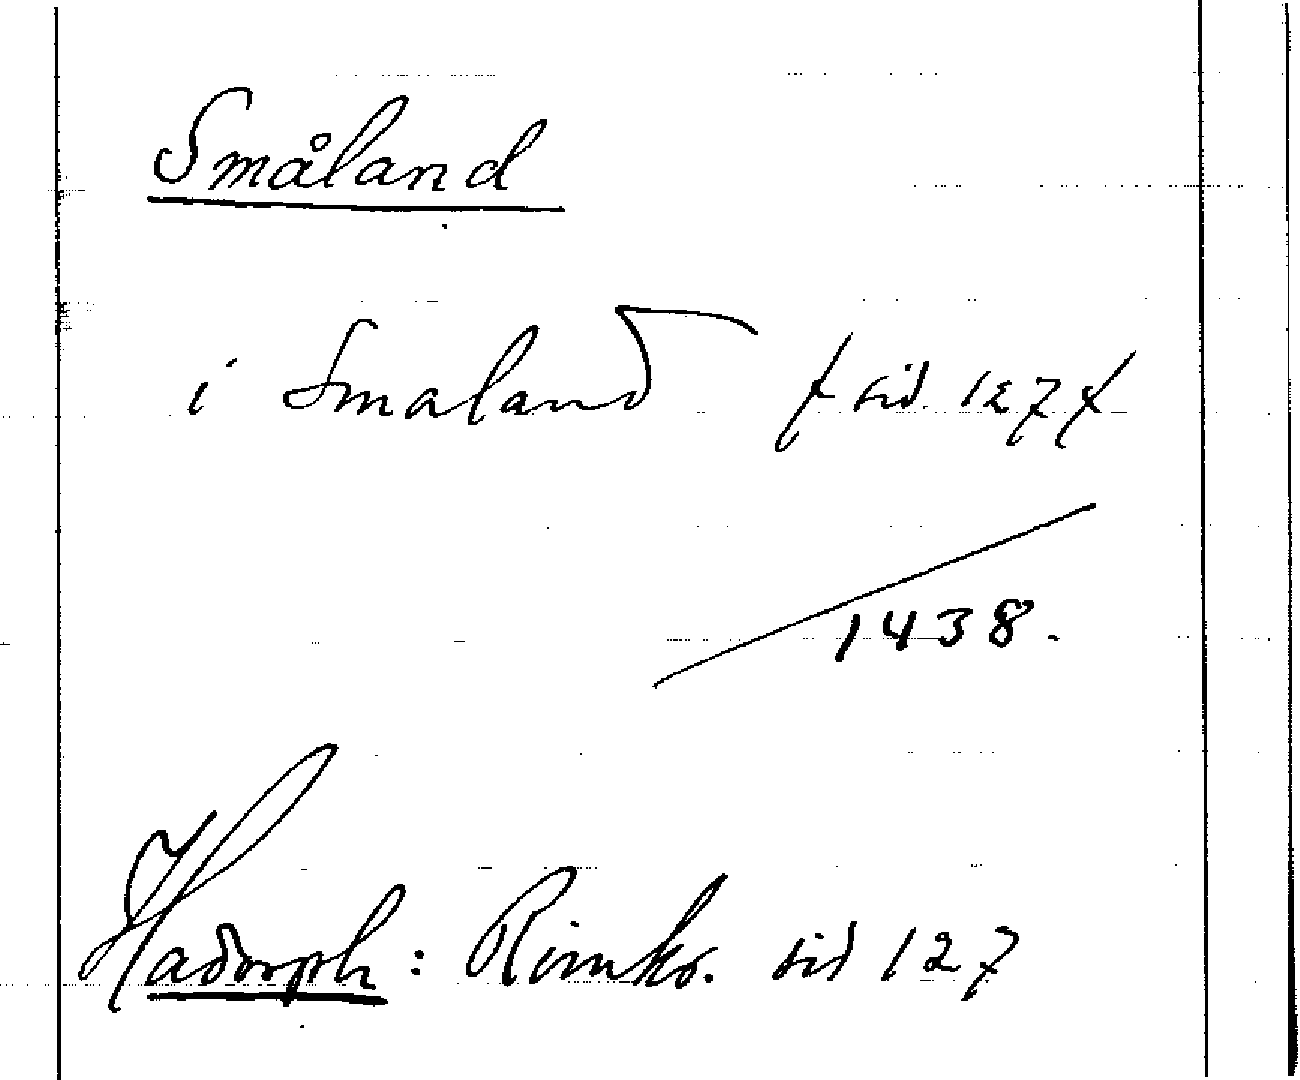 Småland
i Smaland / sid. 127 /
1438.
Hadorph: Rimkr. sid 127